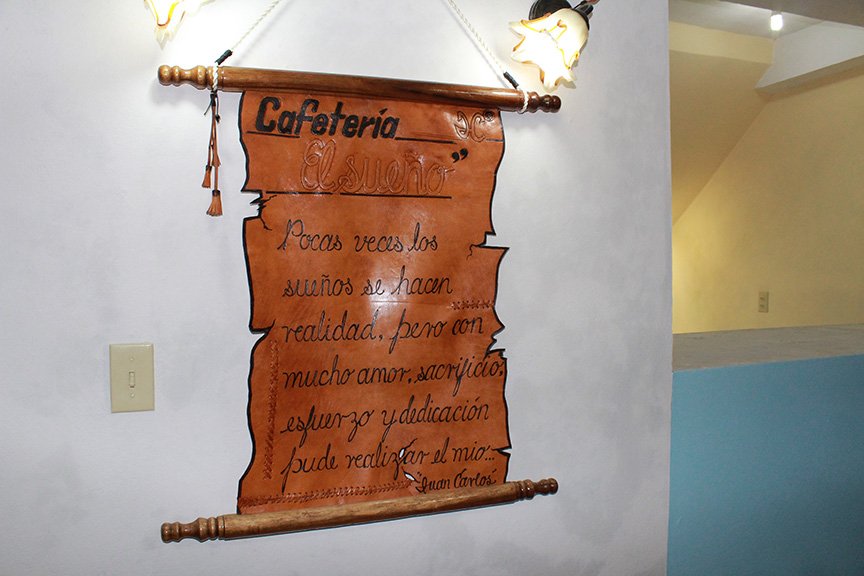 Cafetería JCº
El sueño"
Pocas veces los
sueños se hacen
realidad, pero con
mucho amor, sacrificio,
esfuerzo y dedicación
pude realizar el mio...
"Juan Carlos"